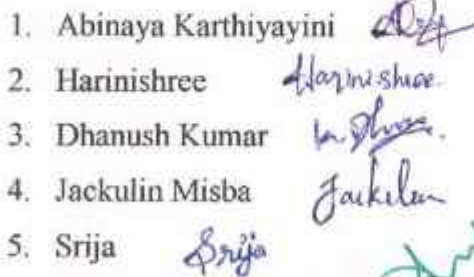 1. Abinaya Karthiyayini
2. Harinishree Harinishree.
3. Dhanush Kumar
4. Jackulin Misba Jackulin
5. Srija Srija